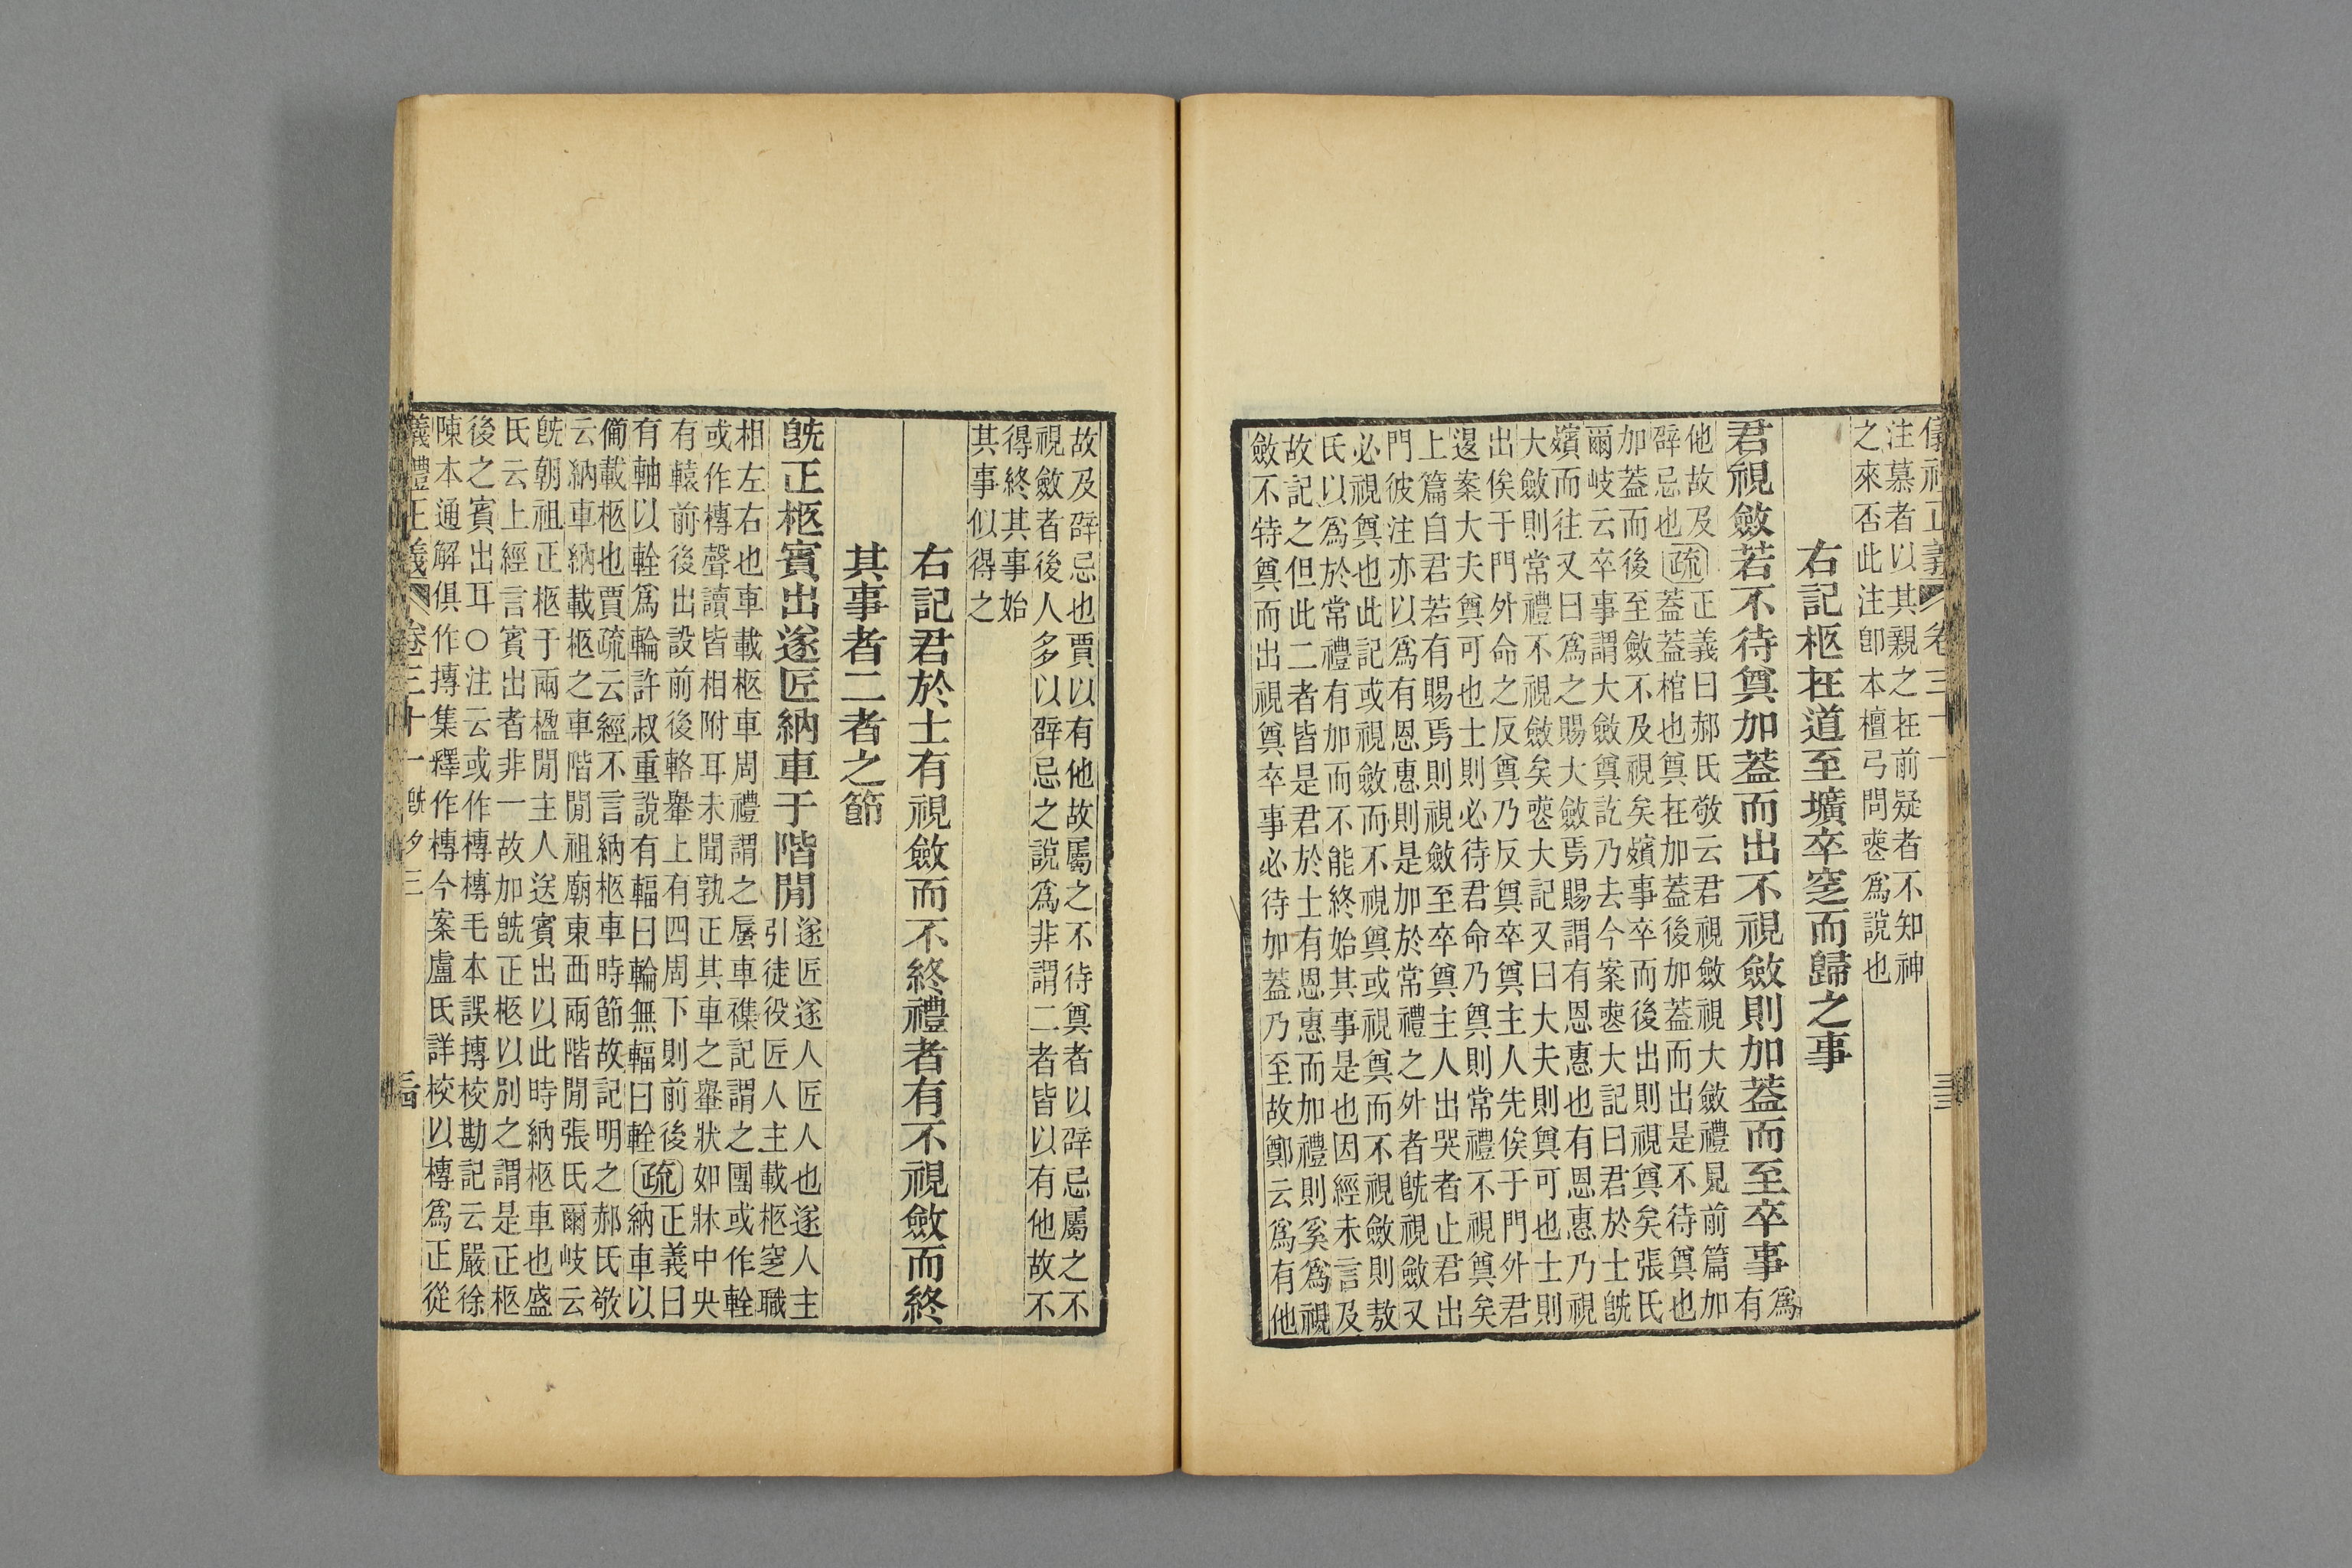 儀禮正義 卷三十一
注慕者以其親之在前疑者不知神
之來否此注卽本檀弓問喪爲說也
右記柩在道至壙卒窆而歸之事
君視斂若不待奠加蓋而出不視斂則加蓋而至卒事爲有
他故及辟忌也疏正義曰郝氏敬云君視斂視大斂禮見前篇加
辟忌也疏蓋蓋棺也奠在加蓋後加蓋而出是不待奠也
加蓋而後至斂不及視矣殯事卒而後出則視奠矣張氏
爾岐云卒事謂大斂奠訖乃去今案喪大記曰君於士旣
殯而往又曰爲之賜大斂焉賜謂有恩惠也有恩惠乃視
大斂則常禮不視斂矣喪大記又曰大夫則奠可也士則
出俟于門外命之反奠乃反奠卒奠主人先俟于門外君
退案大夫奠可也士則必待君命乃奠則常禮不視奠矣
上篇自君若有賜焉則視斂至卒奠主人出哭者止君出
門彼注亦以爲有恩惠則是加於常禮之外者旣視斂又
必視奠也此記或視斂而不視奠或視奠而不視斂則敖
氏以爲於常禮有加而不能終始其事是也因經未言及
故記之但此二者皆是君於士有恩惠而加禮則奚爲視
斂不特奠而出視奠卒事必待加蓋乃至故鄭云爲有他
故及辟忌也賈以有他故屬之不待奠者以辟忌屬之不
視斂者後人多以辟忌之說爲非謂二者皆以有他故不
得終其事始
其事似得之
右記君於士有視斂而不終禮者有不視斂而終
其事者二者之節
旣正柩賓出遂匠納車于階閒遂匠遂人匠人也遂人主
引徒役匠人主載柩窆職
相左右也車載柩車周禮謂之蜃車襍記謂之團或作輇
或作槫聲讀皆相附耳未聞孰正其車之轝狀如牀中央
有轅前後出設前後輅轝上有四周下則前後
有軸以輇爲輪許叔重說有輻曰輪無輻曰輇疏正義曰納車以
備載柩也賈疏云經不言納柩車時節故記明之郝氏敬
云納車納載柩之車階閒祖廟東西兩階閒張氏爾岐云
旣朝祖正柩于兩楹閒主人送賓出以此時納柩車也盛
氏云上經言賓出者非一故加旣正柩以別之謂是正柩
後之賓出耳○注云或作槫槫毛本誤摶校勘記云嚴徐
陳本通解俱作摶集釋作槫今案盧氏詳校以槫爲正從
儀禮正義 卷三十一 旣夕三